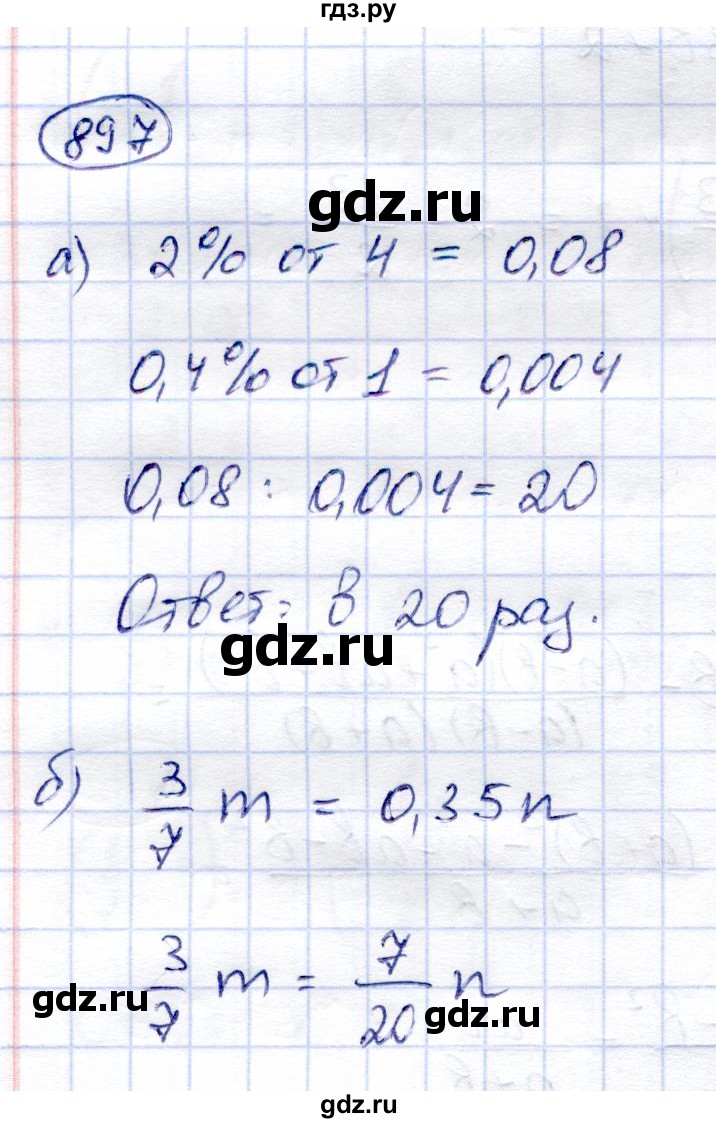 гдз.ру
897
gdz.ru
а) 2% от 4 = 0,08
0,4% от 1 = 0,004
0,08 : 0,004 = 20
Ответ: в 20 раз.
gdz.ru
б) 3/7 m = 0,35 n
3/7 m = 7/20 n
gdz.ru
gdz.ru
gdz.ru